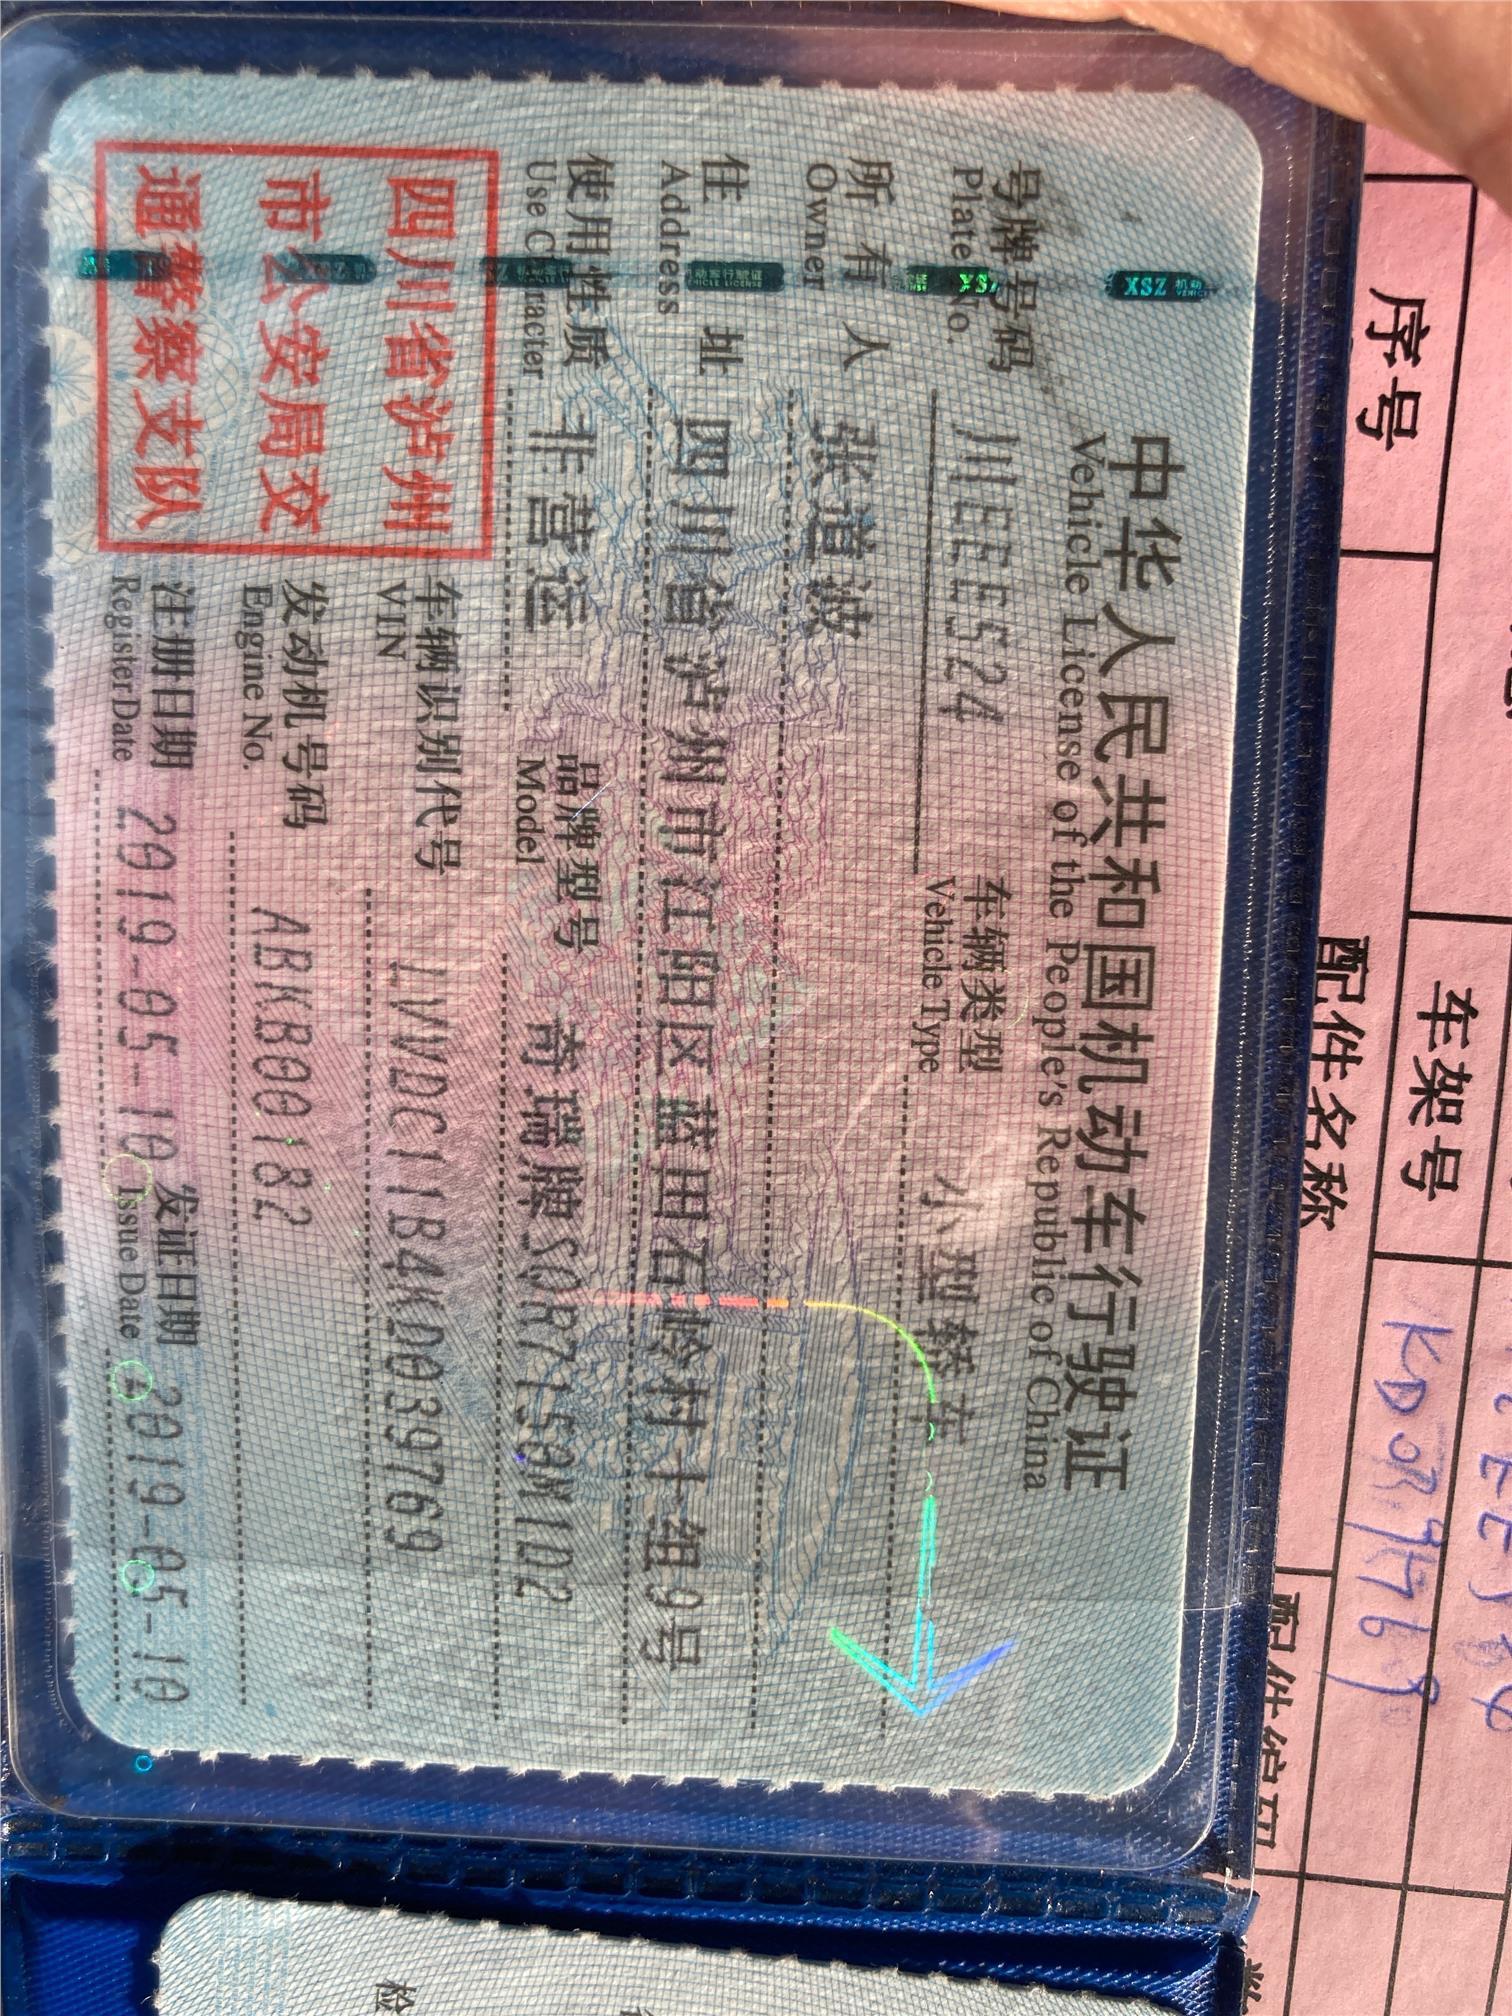 中华人民共和国机动车行驶证
Vehicle License of the People's Republic of China
号牌号码 川EE5524 车辆类型 小型轿车
Plate No. Vehicle Type
所有人 张道波
Owner
住址 四川省泸州市江阳区蓝田石岭村十组9号
Address
使用性质 非营运 品牌型号 奇瑞牌SQR7150M1D2
Use Character Model
四川省泸州
市公安局交
通警察支队
车辆识别代号 LVVDC11B4KD039769
VIN
发动机号码 ABKB00182
Engine No.
注册日期 2019-05-10 发证日期 2019-05-10
Register Date Issue Date
XSZ 机动
序号
配件名称
车架号
KD039769
配件编码
检